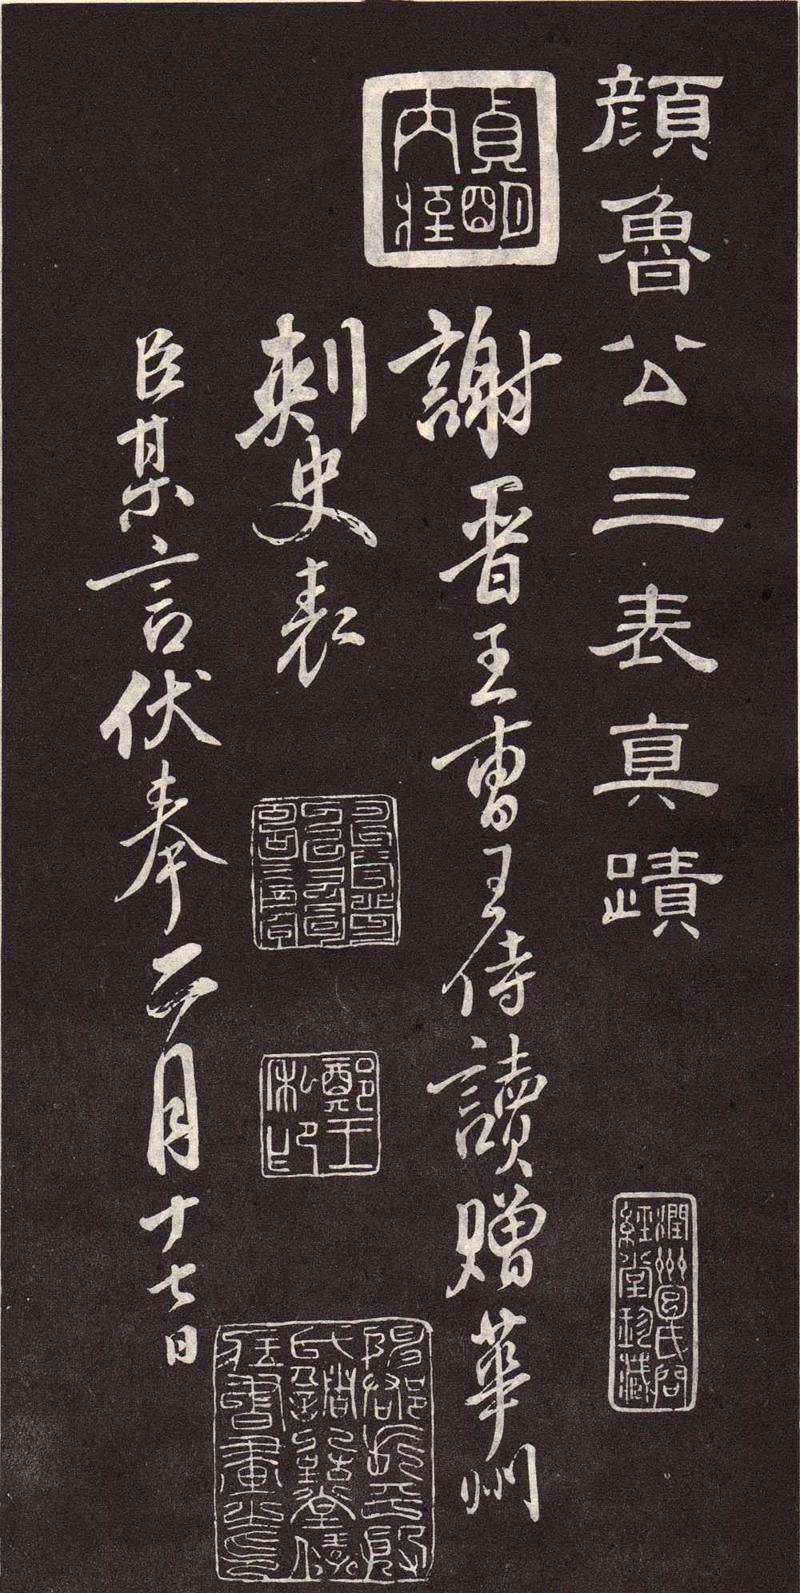 顏魯公三表真蹟
謝晉王曹王侍讀贈華州
刺史表
臣某言伏奉二月十七日